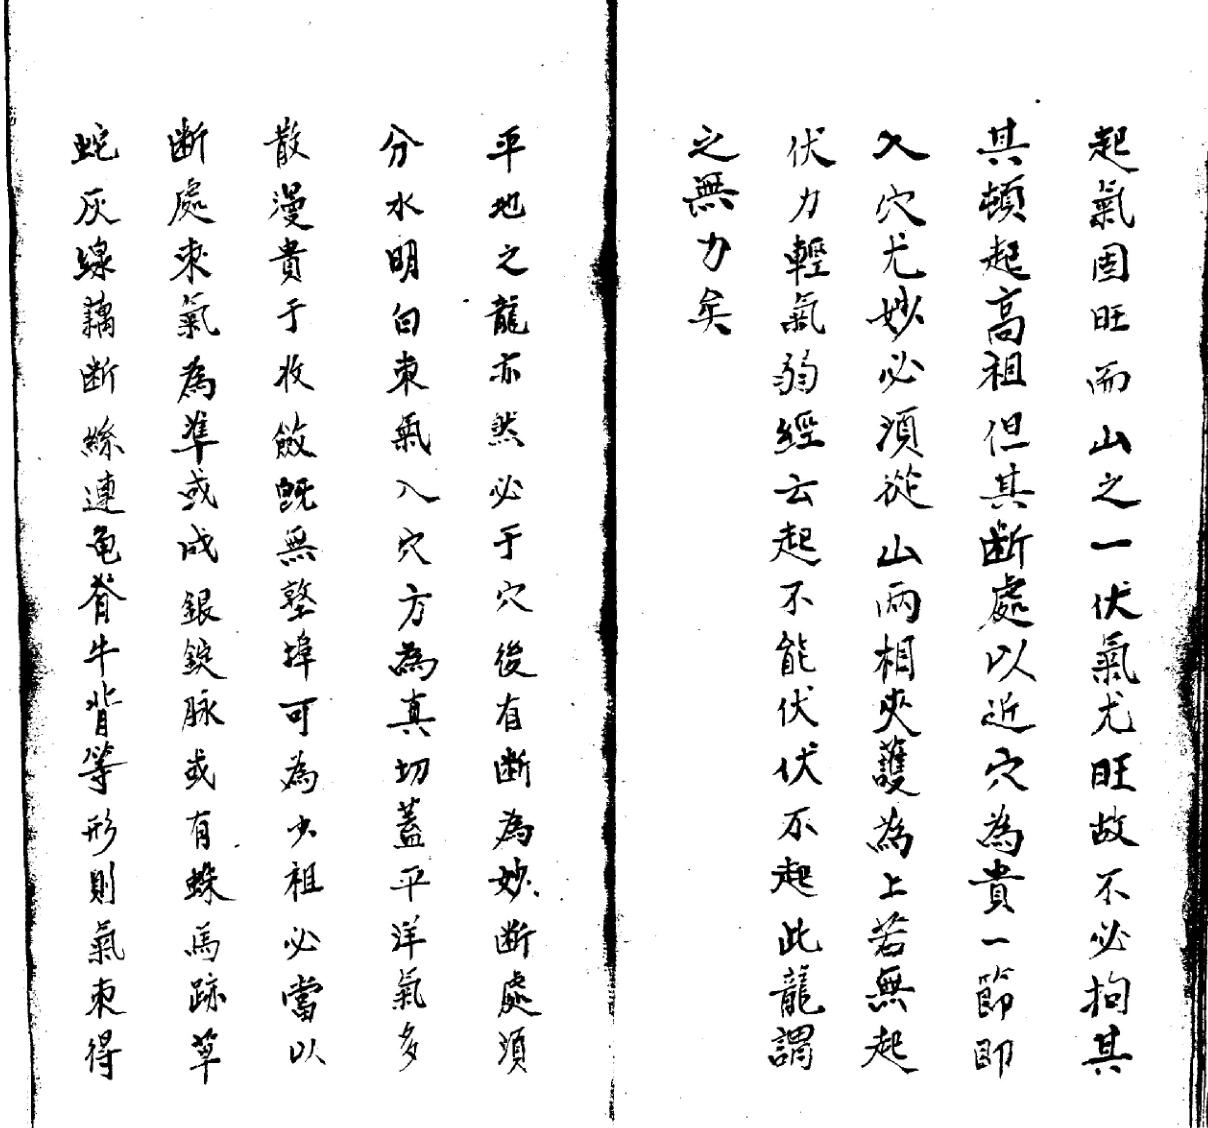 起氣固旺而山之一伏氣尤旺故不必拘其
其頓起高祖但其断處以近穴為貴一節即
入穴尤妙必須從山兩相夾護為上若無起
伏力輕氣弱經云起不能伏伏不起此龍謂
之無力矣
平地之龍亦然必于穴後有断為妙断處須
分水明白束氣入穴方為真切蓋平洋氣多
散漫貴于收斂既無墪埠可為少祖必當以
断處束氣為準或成銀錠脉或有蛛馬跡草
蛇灰線藕断絲連龟脊牛背等形則氣束得